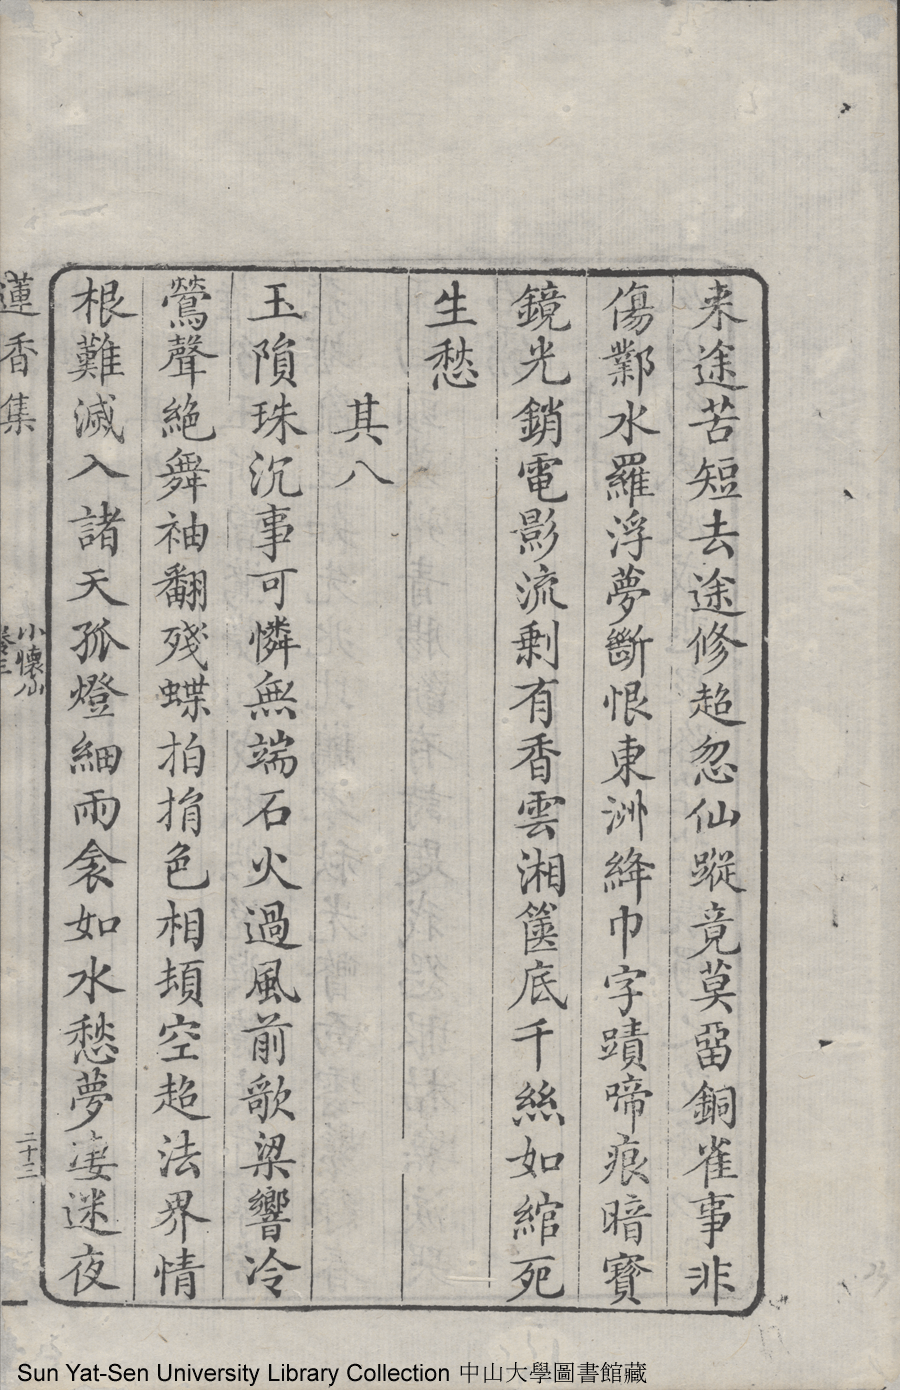 来途苦短去途修超忽仙蹤竟莫畱銅雀事非
傷鄴水羅浮夢斷恨東洲絳巾字蹟啼痕暗寳
鏡光銷電影流剩有香雲湘篋底千絲如綰死
生愁
其八
玉隕珠沉事可憐無端石火過風前歌梁響冷
鶯聲絕舞袖翻殘蝶拍捐色相頓空超法界情
根難滅入諸天孤燈細雨衾如水愁夢淒迷夜
蓮香集
小懷仙
二十三
Sun Yat-Sen University Library Collection 中山大學圖書館藏